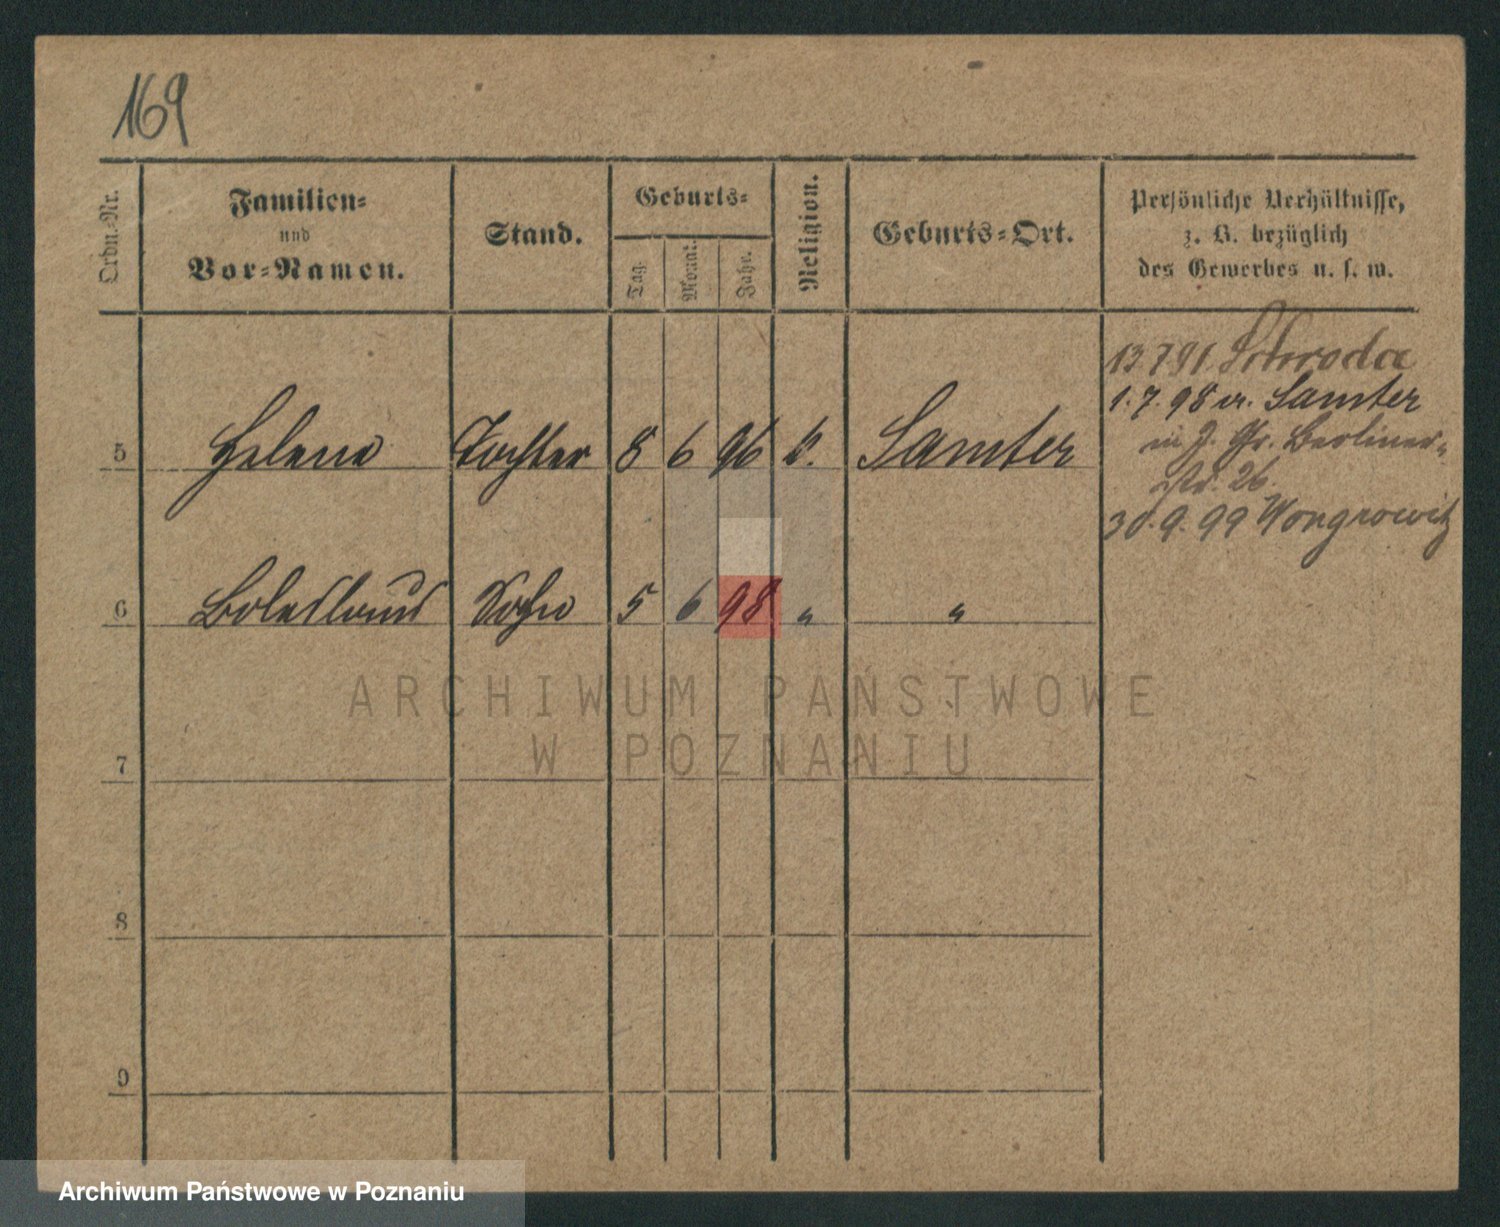 169
Ordn.-Nr.
Familien-
und
Vor-Namen.
Stand.
Geburts-
Tag.
Monat.
Jahr.
Religion.
Geburts-Ort.
Persönliche Verhältnisse,
z. B. bezüglich
des Gewerbes u. s. w.
13 7 91. Schroda
1. 7. 98 v. Samter
Berliner-
Str. 26.
30. 9. 99 Wongrowitz
5 Helene Tochter 8 6 96 k. Samter
6 Boleslaus Sohn 5 6 98 " "
7
8
9
ARCHIWUM PAŃSTWOWE
W POZNANIU
Archiwum Państwowe w Poznaniu